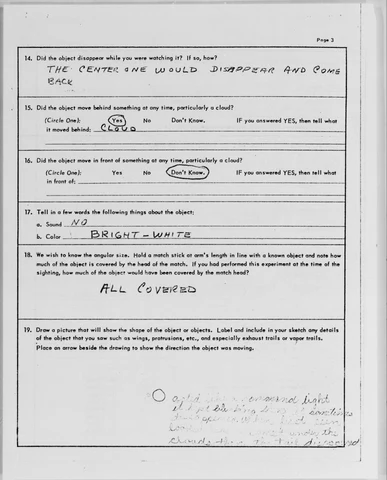 Page 3
14. Did the object disappear while you were watching it? If so, how?
THE CENTER ONE WOULD DISAPPEAR AND COME
BACK
15. Did the object move behind something at any time, particularly a cloud?
(Circle One): Yes No Don't Know. IF you answered YES, then tell what
it moved behind: CLOUD
16. Did the object move in front of something at any time, particularly a cloud?
(Circle One): Yes No Don't Know. IF you answered YES, then tell what
in front of:
17. Tell in a few words the following things about the object:
a. Sound NO
b. Color BRIGHT-WHITE
18. We wish to know the angular size. Hold a match stick at arm's length in line with a known object and note how
much of the object is covered by the head of the match. If you had performed this experiment at the time of the
sighting, how much of the object would have been covered by the match head?
ALL COVERED
19. Draw a picture that will show the shape of the object or objects. Label and include in your sketch any details
of the object that you saw such as wings, protrusions, etc., and especially exhaust trails or vapor trails.
Place an arrow beside the drawing to show the direction the object was moving.
light
sometimes
under the
clouds